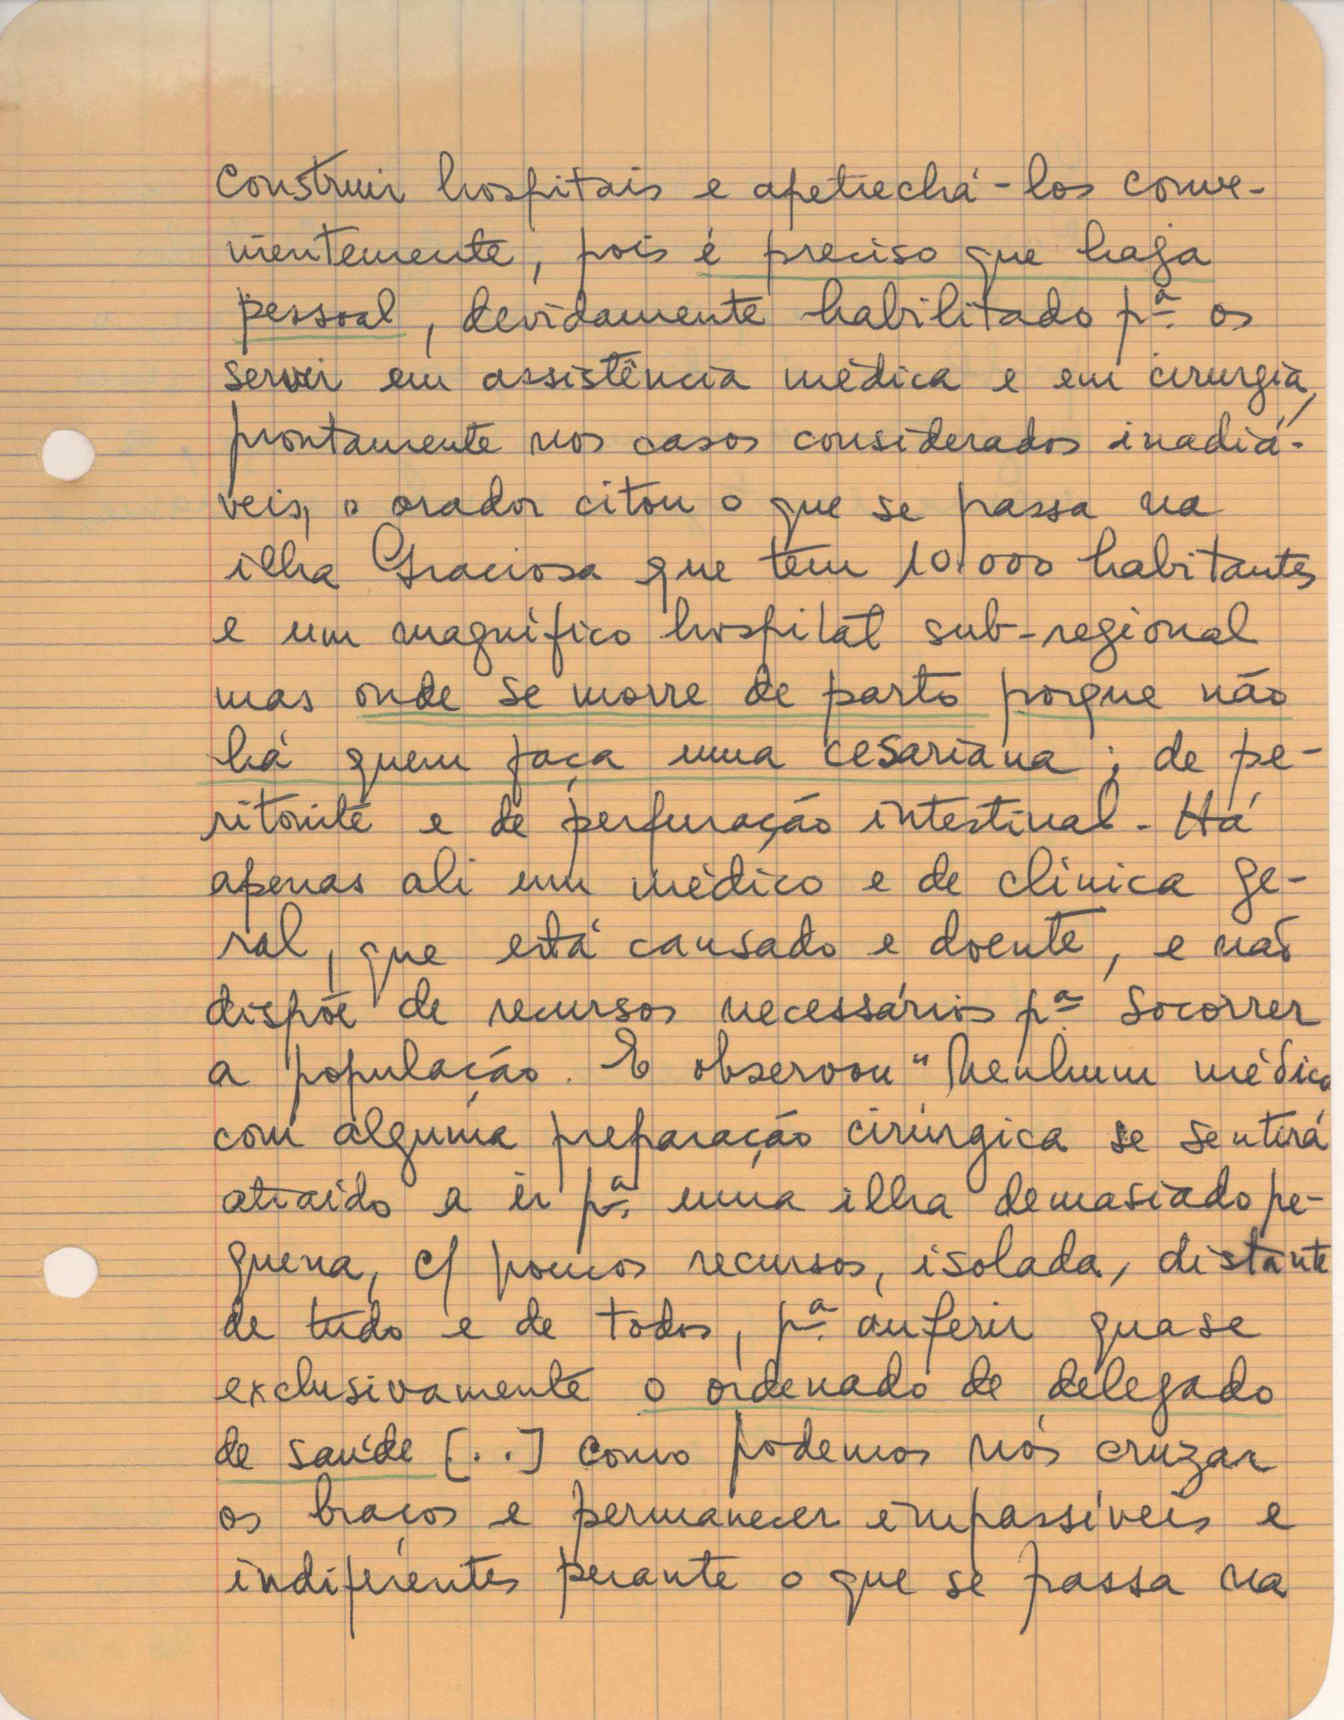 construir hospitais e apetrechá-los conve-
nientemente, pois é preciso que haja
pessoal, devidamente habilitado pª os
servir em assistência médica e em cirurgia,
prontamente nos casos considerados inadiá-
veis, o orador citou o que se passa na
ilha Graciosa que tem 10.000 habitantes
e um magnífico hospital sub-regional
mas onde se morre de parto porque não
há quem faça uma cesariana; de pe-
ritonite e de perfuração intestinal. Há
apenas ali um médico e de clínica ge-
ral, que está cansado e doente, e não
dispõe de recursos necessários pª socorrer
a população. E observou "Nenhum médico
com alguma preparação cirúrgica se sentirá
atraído a ir pª uma ilha demasiado pe-
quena, c/ poucos recursos, isolada, distante
de tudo e de todos, pª auferir quase
exclusivamente o ordenado de delegado
de saúde [..] como podemos nós cruzar
os braços e permanecer impassíveis e
indiferentes perante o que se passa na